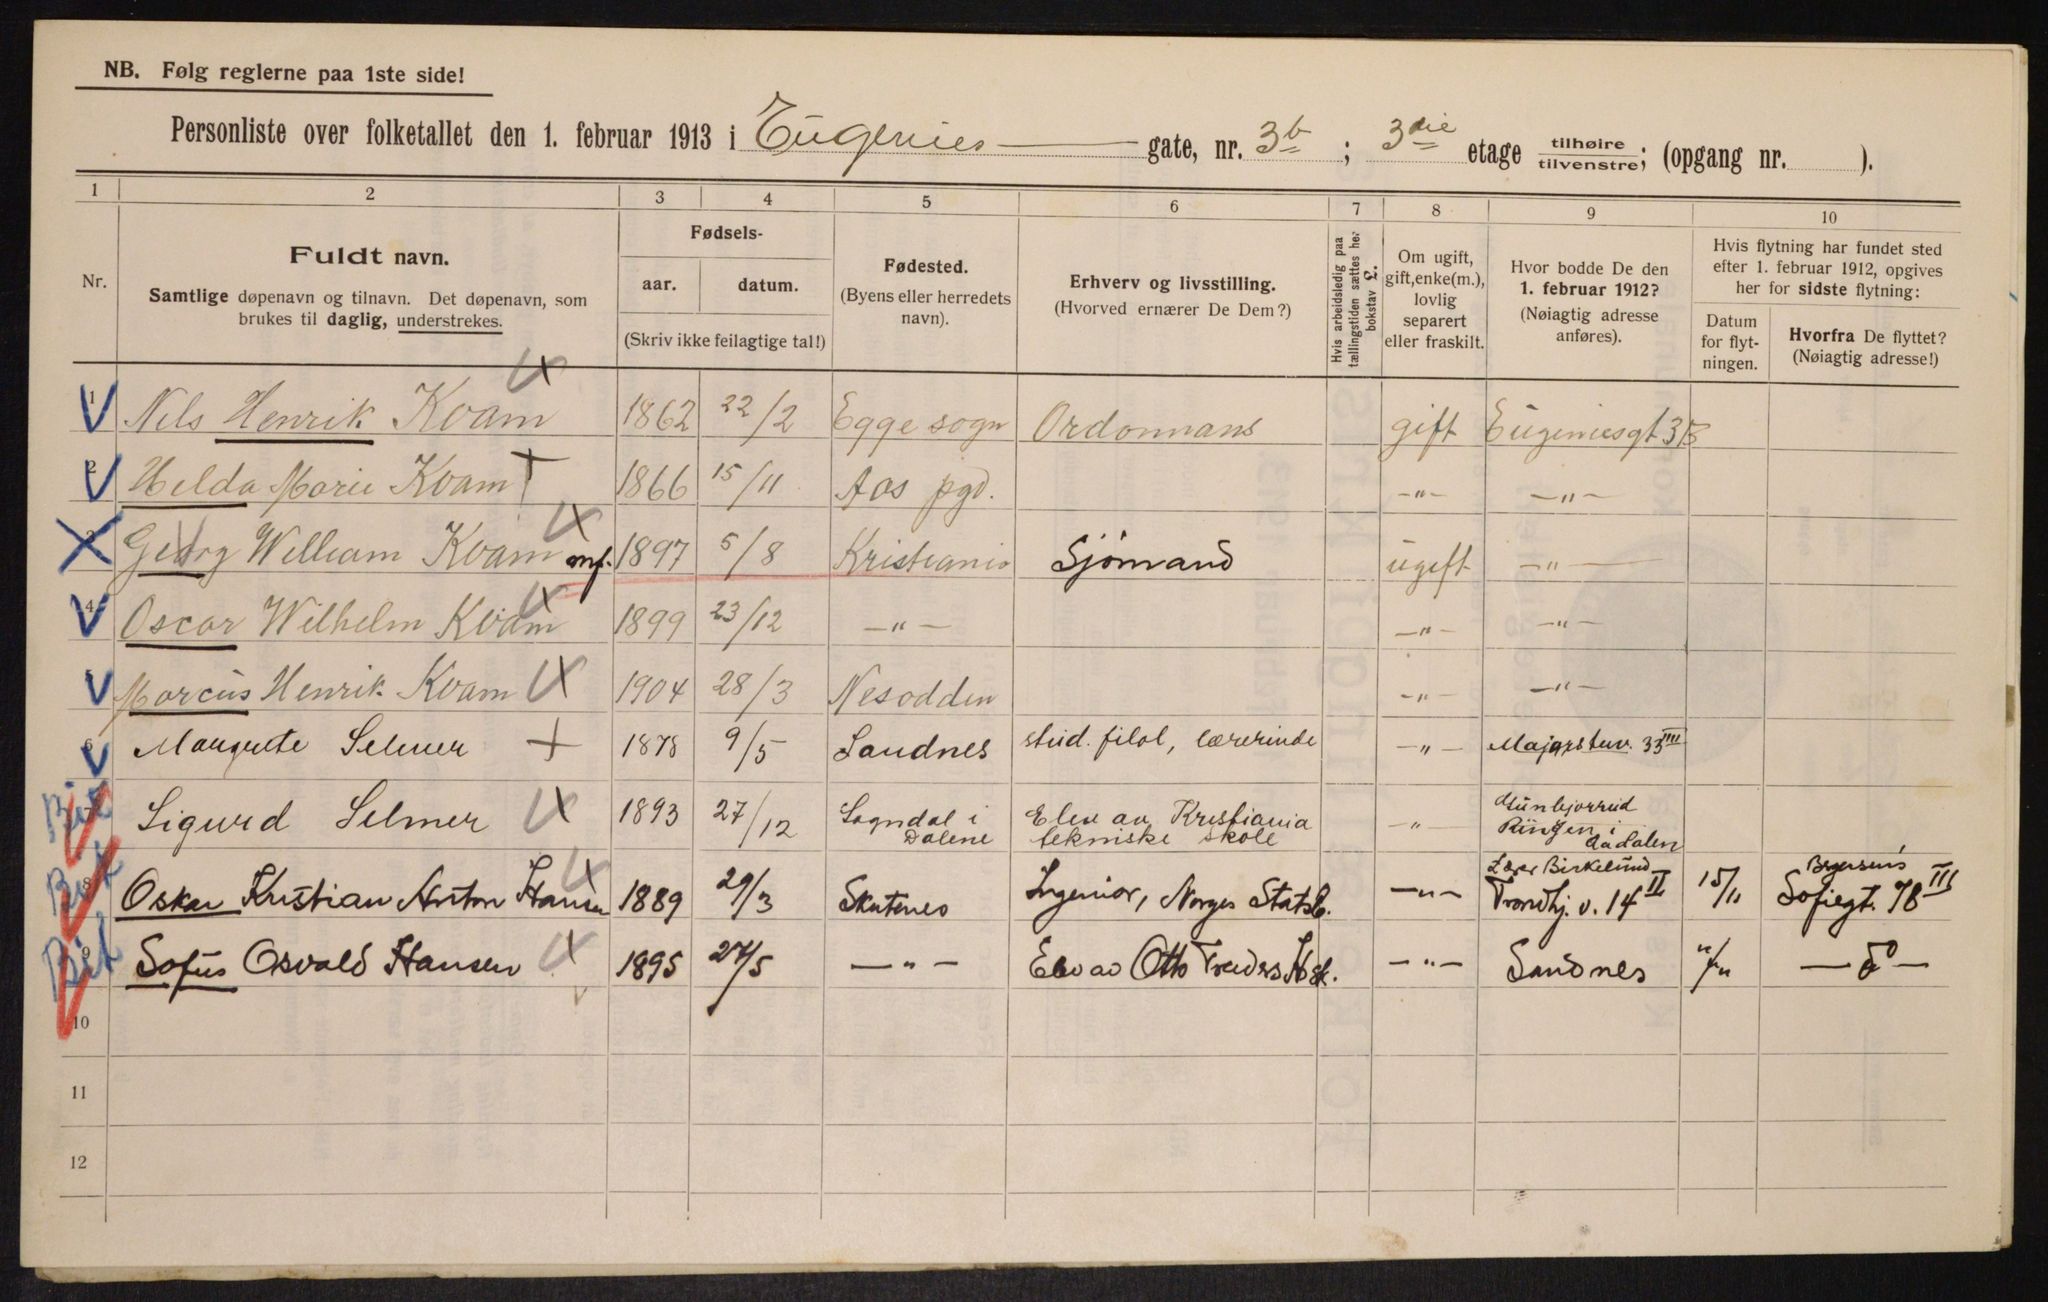 NB. Følg reglerne paa 1ste side!
Personliste over folketallet den 1. februar 1913 i Eugenies gate, nr. 3b ; 3die etage tilhøire tilvenstre; (opgang nr. ).
1 2 3 4 5 6 7 8 9 10
Nr.
Fuldt navn.
Samtlige døpenavn og tilnavn. Det døpenavn, som
brukes til daglig, understrekes.
Fødsels-
aar. datum.
(Skriv ikke feilagtige tal!)
Fødested.
(Byens eller herredets
navn).
Erhverv og livsstilling.
(Hvorved ernærer De Dem?)
Hvis arbeidsledig paa
tællingstiden sættes her
bokstav L.
Om ugift,
gift, enke(m.),
lovlig
separert
eller fraskilt.
Hvor bodde De den
1. februar 1912?
(Nøiagtig adresse
anføres).
Hvis flytning har fundet sted
efter 1. februar 1912, opgives
her for sidste flytning:
Datum
for flyt-
ningen.
Hvorfra De flyttet?
(Nøiagtig adresse!)
1 Nils Henrik Kvam 1862 22/2 Egge sogn Ordonnans gift Eugeniesgt 3B
2 Helda Marie Kvam 1866 15/11 Aas pgd. —"— —"—
3 Georg William Kvam mf. 1897 5/8 Kristiania Sjömand ugift —"—
4 Oscar Wilhelm Kvam 1899 23/12 —"— —"— —"—
Marcus Henrik Kvam 1904 28/3 Nesodden —"— —"—
6 Margrete Selmer 1878 9/5 Sandnes stud. filol, lærerinde —"— Majorstuv. 33 III
7 Sigurd Selmer 1893 27/12 Sogndal i Dalene Elev av Kristiania tekniske skole —"— Ringen i Aadalen
8 Oskar Kristian Anton Hansen 1889 29/3 Skutenes Ingeniør, Norges Statsb. —"— Lærer Birkelund Trondhj. v. 14 II 15/11 Sofiegt. 78 III
9 Sofus Osvald Hansen 1895 27/5 —"— Elev av Otto Treiders Hsk. —"— Sandnes "/" — do —
10
11
12